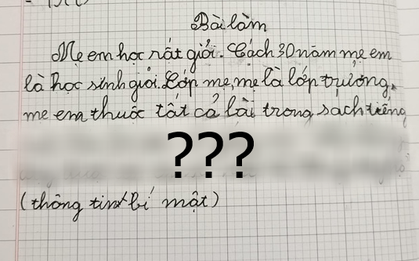 Bài làm
Mẹ em học rất giỏi. Cách 30 năm mẹ em
là học sinh giỏi. Lớp mẹ, mẹ là lớp trưởng,
mẹ em thuộc tất cả bài trong sach tiếng
???
(thông tin bí mật)